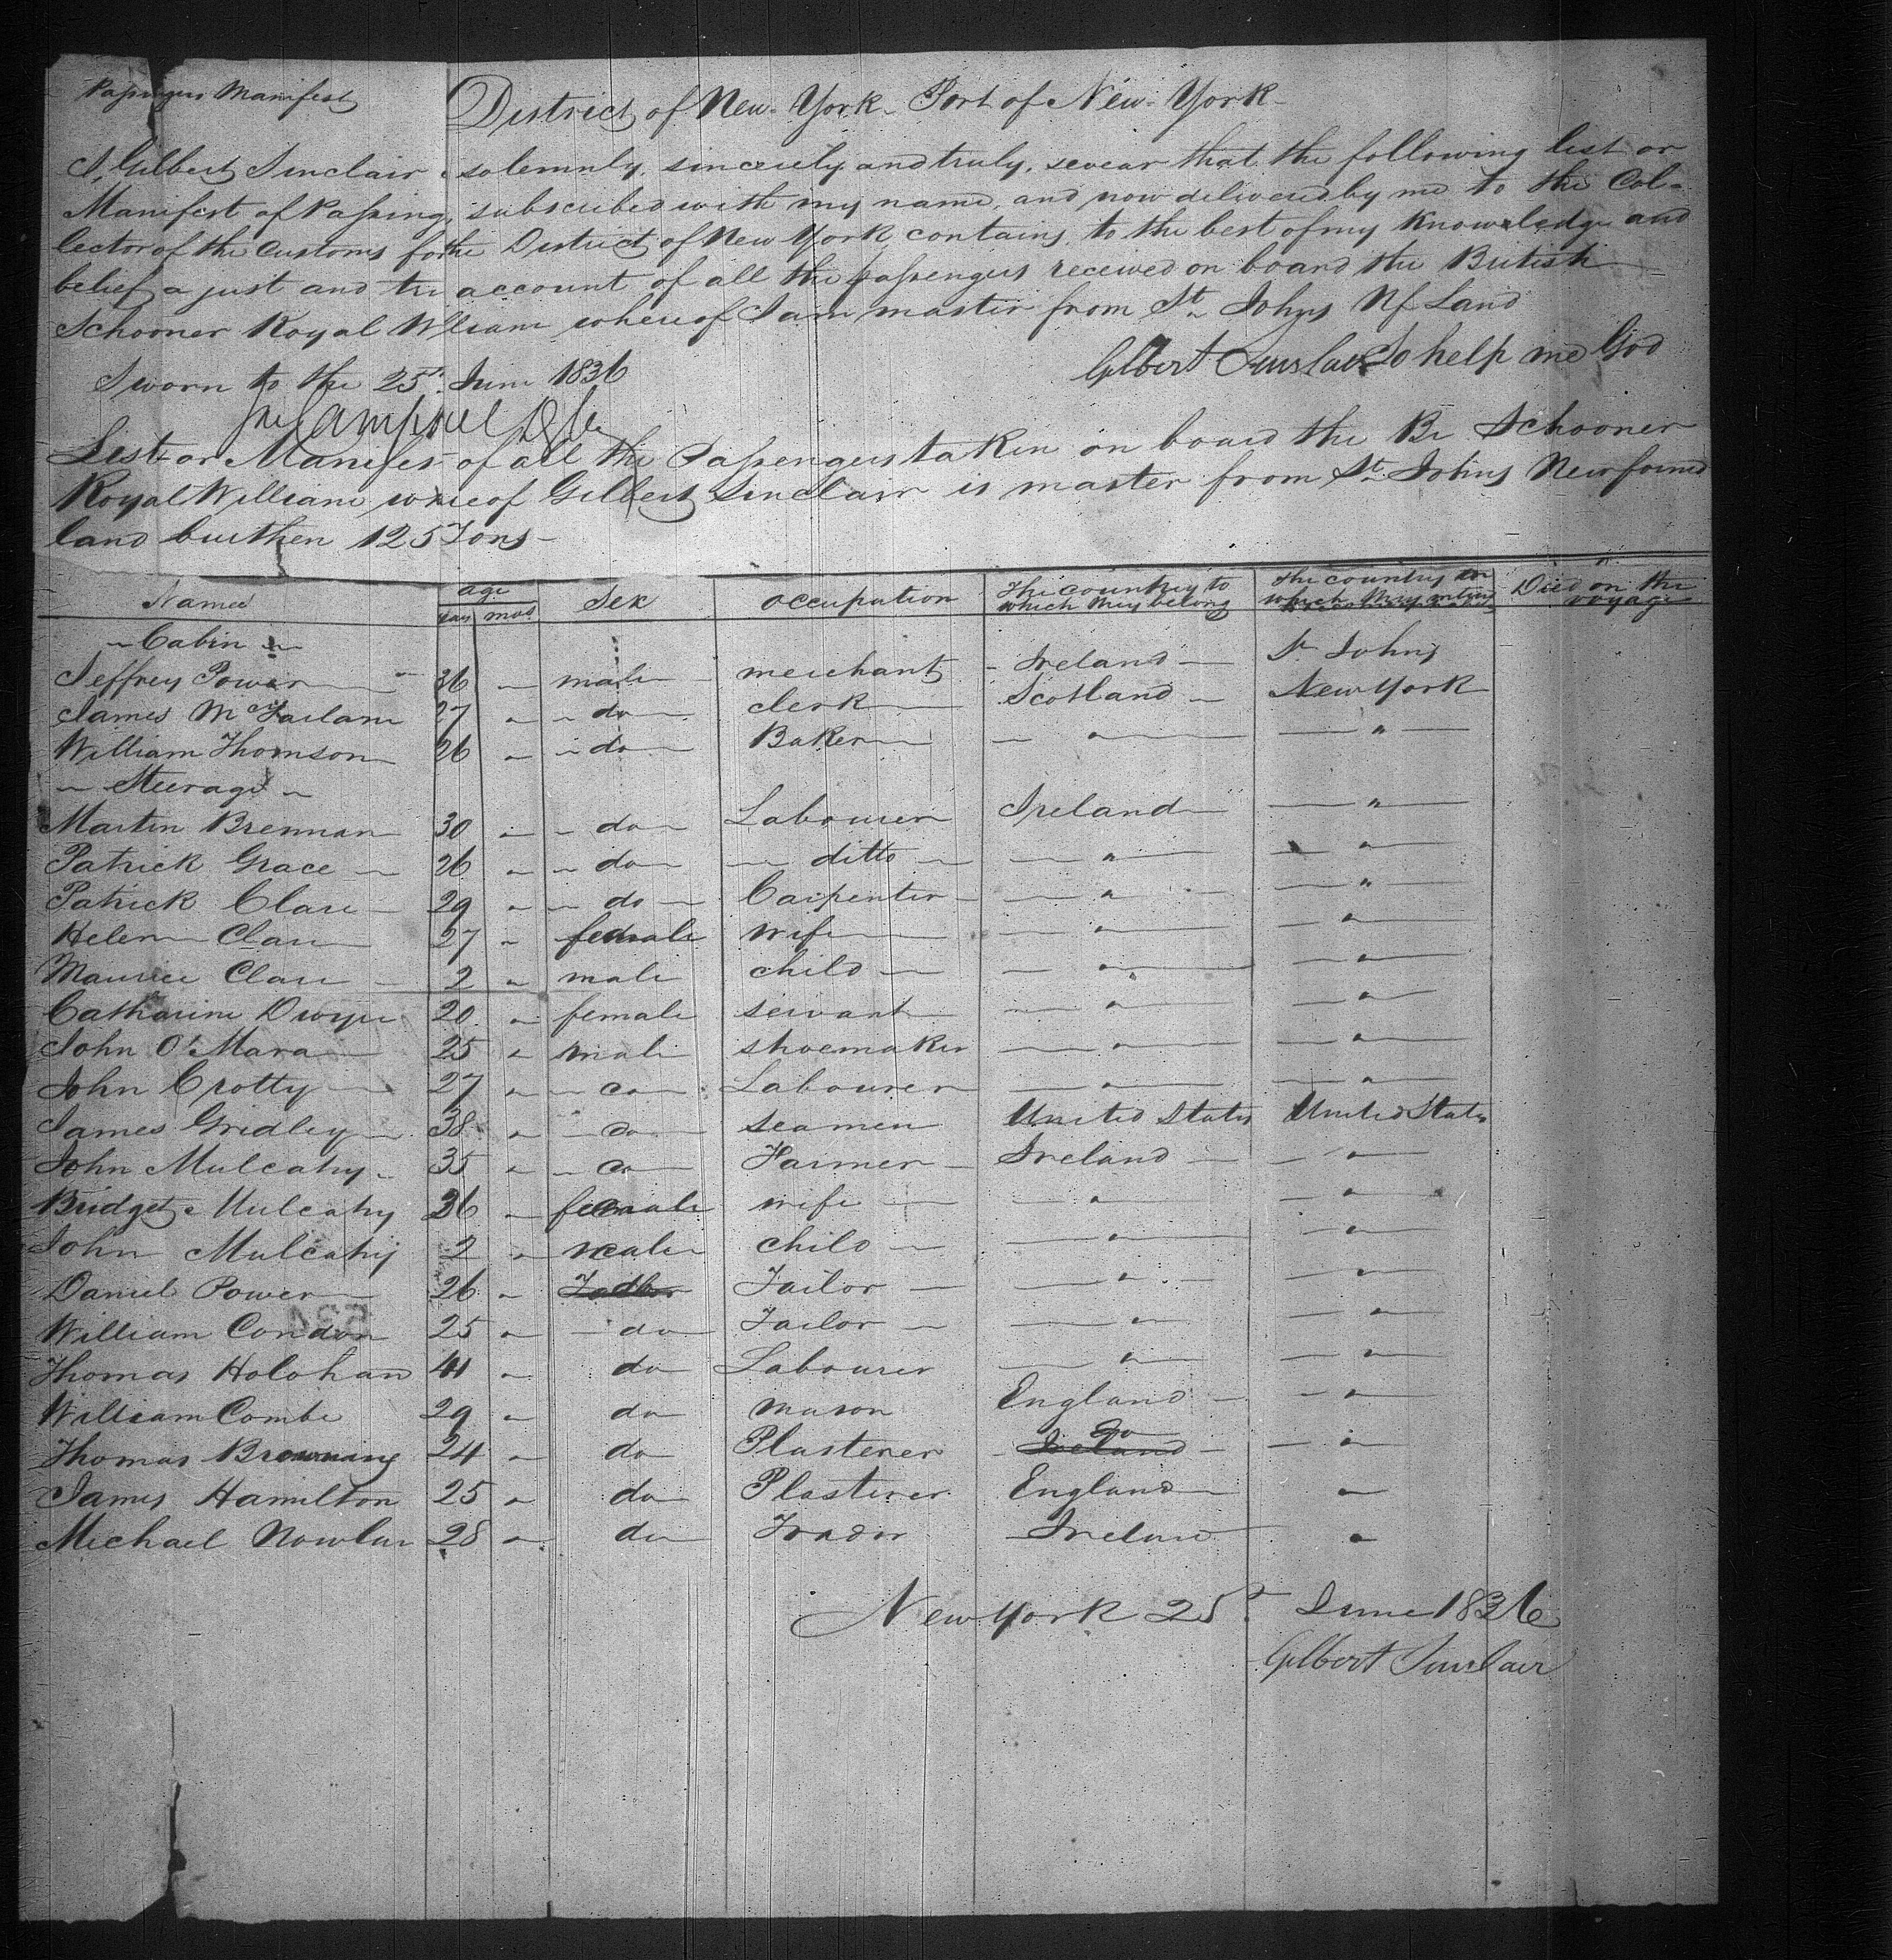 Passengers Manifest
District of New-York - Port of New-York-
I, Gilbert Sinclair solemnly, sincerely and truly, swear that the following list or
Manifest of Passing subscribed with my name, and now delivered by me to the Col-
lector of the Customs for the District of New York contains, to the best of my knowledge and
belief a just and tru account of all the passengers received on board the British
Schooner Royal William whereof I am master from St Johns Nf Land
Gilbert Sinclair So help me God
Sworn to the 25th June 1836
List or Manifest of all the Passengers taken on board the Br Schooner
Royal William whereof Gilbert Sinclair is master from St Johns Newfound
land burthen 125 Tons-
Names age years mos Sex occupation The country to which they belong The country to which they Died on the voyage
Cabin
Jeffrey Power 36 - male merchant - Ireland - St Johns
James McFarlane 27 " do clerk Scotland - New York
William Thomson 26 - do Baker " "
Steerage
Martin Brennan 30 - do Labourer Ireland "
Patrick Grace 26 " do ditto " "
Patrick Clare 29 " do Carpenter " "
Helen Clare 27 " female wife " "
Maurice Clare 2 " male child " "
Catharine Dwyer 20 " female servant " "
John O'Mara 25 " male shoemaker " "
John Crotty 27 " do Labourer " "
James Gridley 38 " do seamen United States United States
John Mulcahy 35 " do Farmer Ireland "
Bridget Mulcahy 26 - female wife " "
John Mulcahy 2 " male child " "
Daniel Power 26 " Tailor Tailor " "
William Condon 25 " do Tailor " "
Thomas Holohan 41 " do Labourer " "
William Combe 29 " do mason England "
Thomas Browning 24 " do Plasterer Ireland do "
James Hamilton 25 " do Plasterer England "
Michael Nowlan 28 " do Trador Ireland "
New York 25th June 1836
Gilbert Sinclair